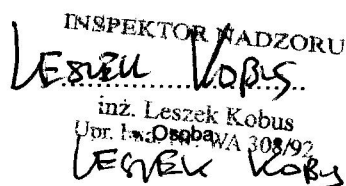 INSPEKTOR NADZORU
LESZEK KOBUS
inż. Leszek Kobus
Upr. Osoba WA 308/92
LESZEK KOBUS